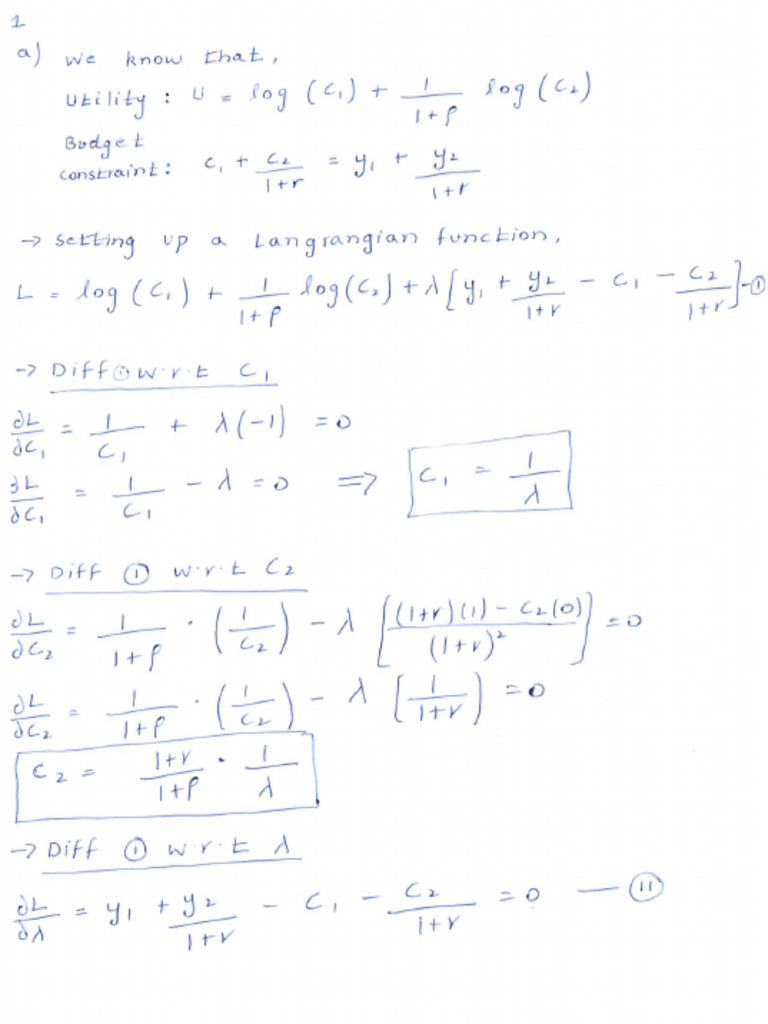 1
a) we know that,
Utility : U = log (C₁) + 1/(1+ρ) log (C₂)
Budget
constraint : C₁ + C₂/(1+r) = y₁ + y₂/(1+r)
→ Setting up a Langrangian function,
L = log (C₁) + 1/(1+ρ) log(C₂) + λ[y₁ + y₂/(1+r) - C₁ - C₂/(1+r)] - ①
→ Diff ① w.r.t C₁
∂L/∂C₁ = 1/C₁ + λ(-1) = 0
∂L/∂C₁ = 1/C₁ - λ = 0 ⇒ C₁ = 1/λ
→ Diff ① w.r.t C₂
∂L/∂C₂ = 1/(1+ρ) · (1/C₂) - λ [((1+r)(1) - C₂(0))/(1+r)²] = 0
∂L/∂C₂ = 1/(1+ρ) · (1/C₂) - λ [1/(1+r)] = 0
C₂ = (1+r)/(1+ρ) · 1/λ
→ Diff ① w.r.t λ
∂L/∂λ = y₁ + y₂/(1+r) - C₁ - C₂/(1+r) = 0 — ⑪